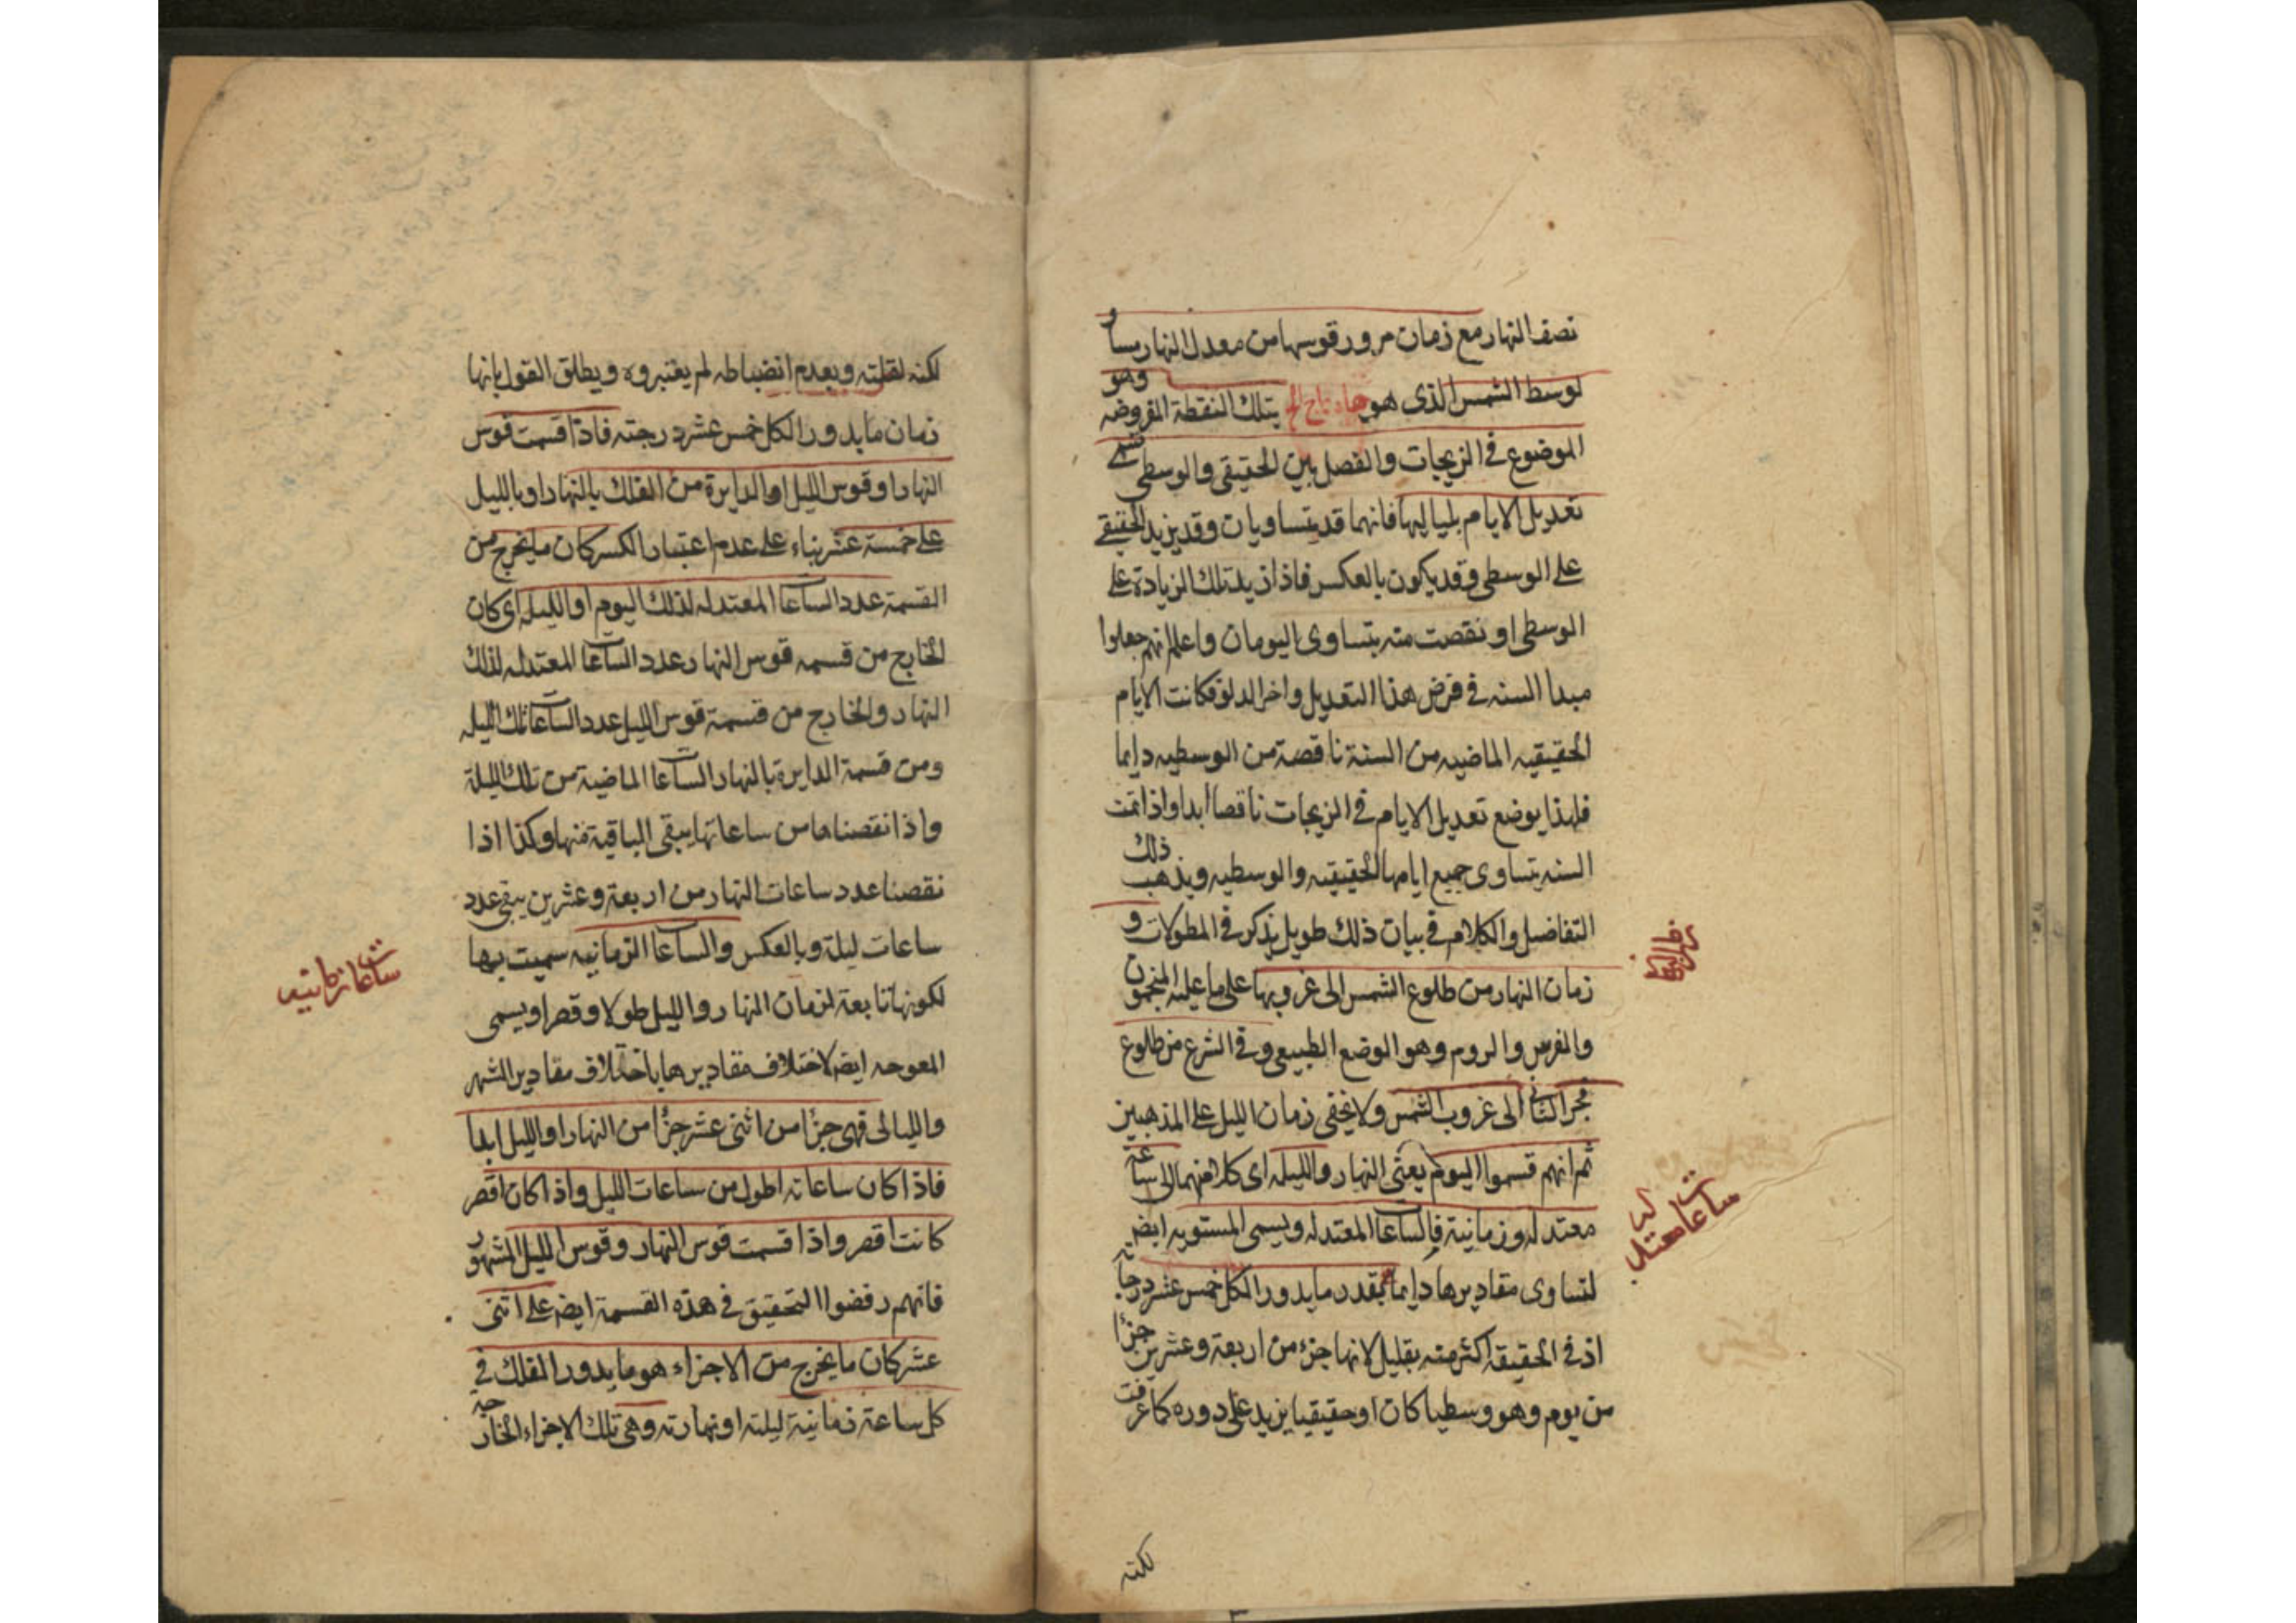 نصف النهار مع زمان مرور قوسها من معدل النهار مساو
لوسط الشمس الذى هو بتلك النقطة المفروضه وهو
الموضوع فى الزيجات والفصل بين الحقيقى والوسطى تسمى
تعديل الايام بلياليها فانهما قد يتساويات وقد يزيد الحقيقى
على الوسطى وقد يكون بالعكس فاذا زيد تلك الزيادة على
الوسطى او نقصت منه يتساوى اليومان واعلم انهم جعلوا
مبدا السنه فى فرض هذا التعديل واخر الدلو فكانت الايام
الحقيقيه الماضيه من السنة ناقصة من الوسطيه دايما
فلهذا يوضع تعديل الايام فى الزيجات ناقصا ابدا واذا تمت
السنه يتساوى جميع ايامها الحقيقيه والوسطيه ويذهب ذلك
التفاضل والكلام فى بيان ذلك طويل يذكر فى المطولات و
زمان النهار من طلوع الشمس الى غروبها على ما عليه المنجمون
والفرس والروم وهو الوضع الطبيعى وفى الشرع من طلوع
فجر الثانى الى غروب الشمس ولا يخفى زمان الليل على المذهبين
ثم انهم قسموا اليوم يعنى النهار والليله اى كلا منهما الى ساعة
معتدله وزمانية فالساعات المعتدله ويسمى المستويه ايضا
لتساوى مقاديرها دايما بمقدر ما يدور الكل خمس عشر درجاته
اذ فى الحقيقه اكثر منه بقليل لانها جزء من اربعة وعشرين جزءا
من يوم وهو وسطيا كان او حقيقيا يزيد على دوره كما عرفت
لكنه
ساعات معتدله
لكنه لقلته وبعدم انضباطه لم يعتبروه ويطلق القول بانها
زمان ما يدور الكل خمس عشر درجته فاذا قسمت قوس
النهار او قوس الليل او الدايرة من الفلك بالنهار او بالليل
على خمسة عشر بناء على عدم اعتبار الكسر كان ما يخرج من
القسمة عدد الساعات المعتدله لذلك اليوم او الليله اى كان
الخارج من قسمه قوس النهار عدد الساعات المعتدله لذلك
النهار والخارج من قسمة قوس الليل عدد الساعات تلك الليله
ومن قسمة الدايرة بالنهار الساعات الماضية من تلك الليلة
واذا نقصناها من ساعاتها يبقى الباقية منها وكذا اذا
نقصنا عدد ساعات النهار من اربعة وعشرين يبقى عدد
ساعات ليلة وبالعكس والساعات الزمانيه سميت بها
لكونها تابعة لزمان النهار والليل طولا وقصرا ويسمى
المعوجه ايضا لاختلاف مقاديرها باختلاف مقادير الشهر
والليالى فهى جزءا من اثنى عشر جزءا من النهار او الليل ابدا
فاذا كان ساعاته اطول من ساعات الليل واذا كان اقصر
كانت اقصر واذا قسمت قوس النهار وقوس الليل المشهور
فانهم رفضوا التحقيق فى هذه القسمة ايضا على اثنى
عشر كان ما يخرج من الاجزاء هو ما يدور الفلك فى
كل ساعة زمانية ليلته او نهارته وهى تلك الاجزاء الخارجه
ساعات زمانيه